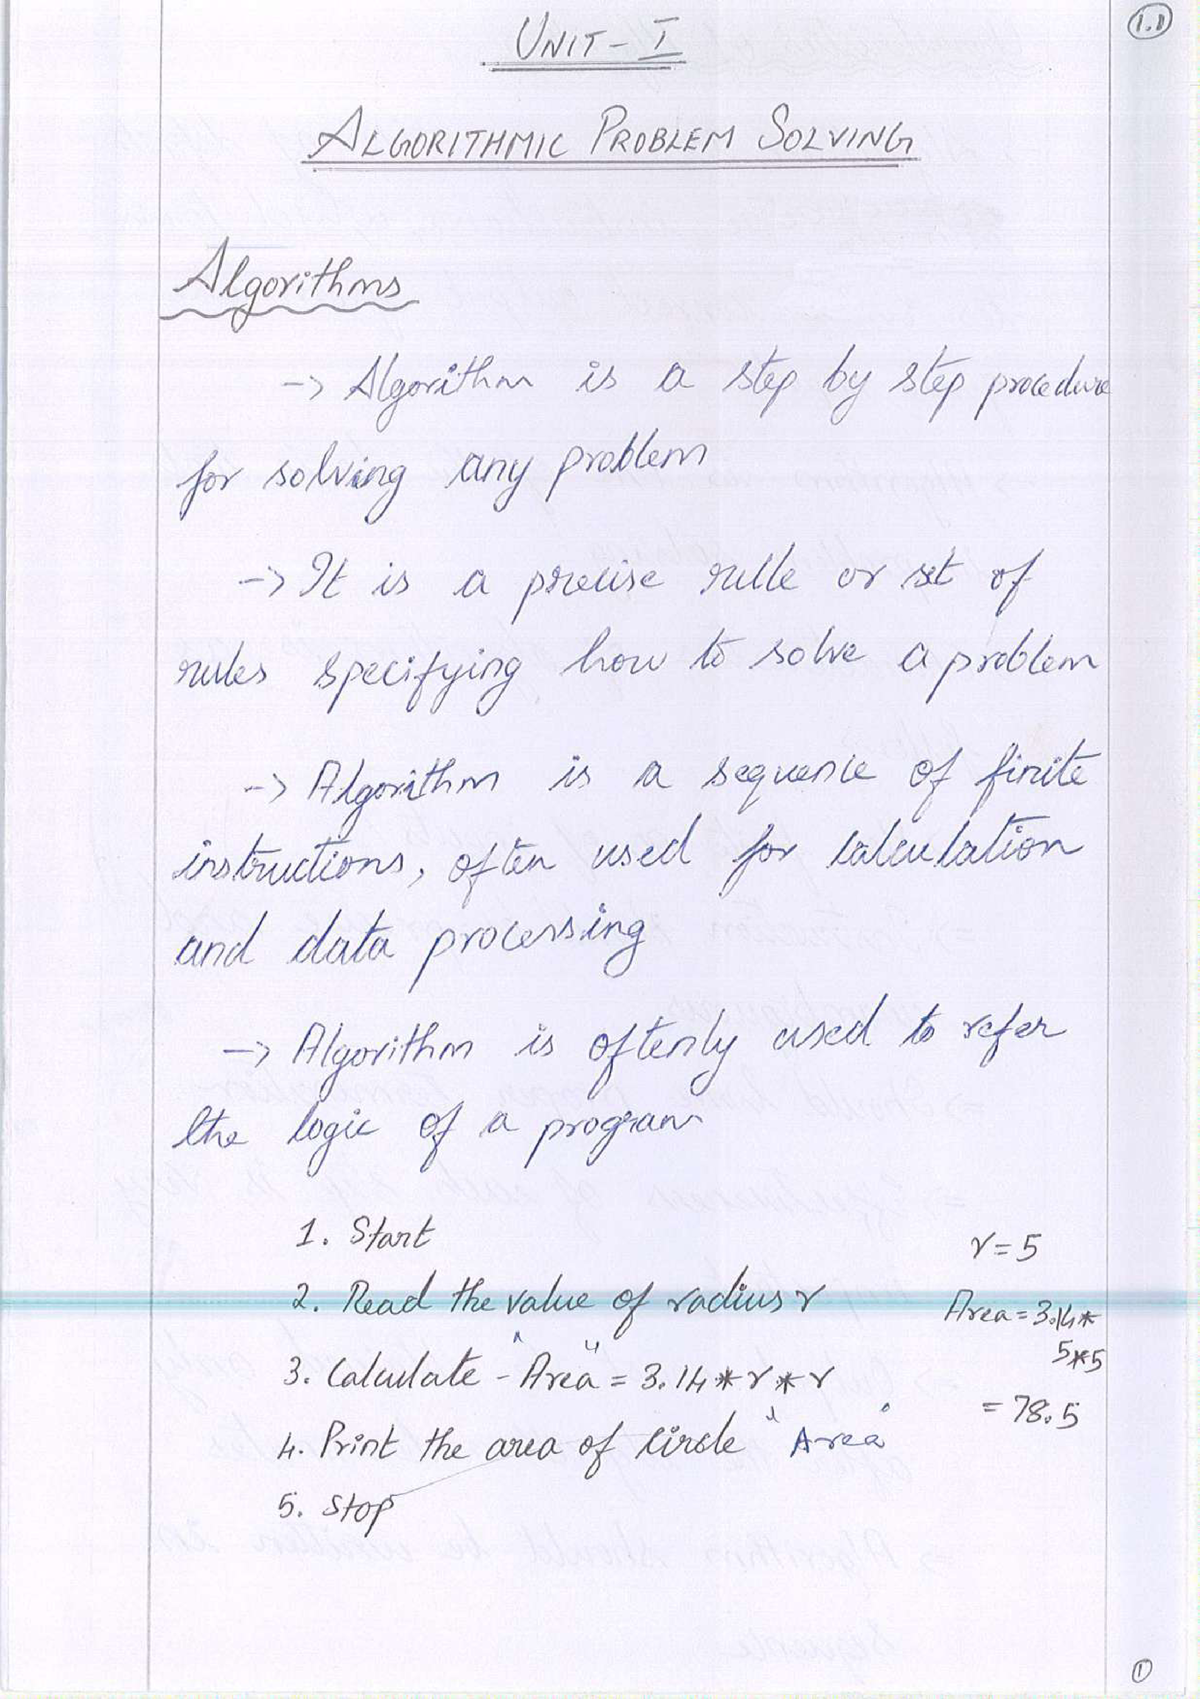 1.1
UNIT - I
ALGORITHMIC PROBLEM SOLVING
Algorithms
-> Algorithm is a step by step procedure
for solving any problem
-> It is a precise rule or set of
rules specifying how to solve a problem
-> Algorithm is a sequence of finite
instructions, often used for calculation
and data processing
-> Algorithm is oftenly used to refer
the logic of a program
1. Start
2. Read the value of radius r
3. Calculate - "Area" = 3.14 * r * r
4. Print the area of Circle "Area"
5. Stop
r = 5
Area = 3.14 *
5 * 5
= 78.5
1